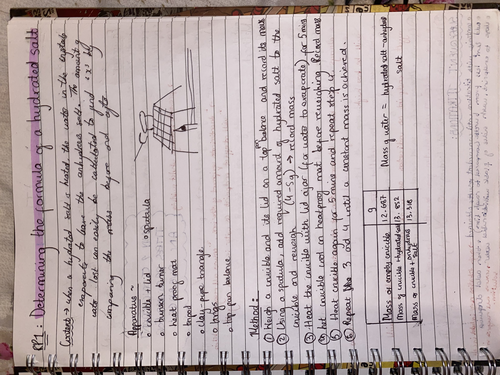 PP1: Determining the formula of a hydrated salt
Context → when hydrated salt is heated, the water in the crystals
evaporates to leave the anhydrous salt. The amount of
water lost can easily be calculated to find 'x', by
comparing the masses before and after
Apparatus ~
• crucible + lid
• spatula
• bunsen burner
• heat proof mat
• tripod
• clay pipe triangle
• tongs
• top pan balance
Method:
① Weigh a crucible and its lid on a top pan balance and record its mass
② Using a spatula, add required amount of hydrated salt to the
crucible and reweigh (4-5g) → record mass
③ Heat the crucible with lid ajar (for water to evaporate) for 5 mins
④ let crucible cool on heatproof mat before reweighing. Record mass.
⑤ Heat crucible again for 5 mins and repeat step 4
⑥ Repeat steps 3 and 4 until a constant mass is achieved.
g
Mass of empty crucible 12.667
Mass of crucible + hydrated salt
Mass of crucible + anhydrous salt
Mass of water = hydrated salt - anhydrous
salt